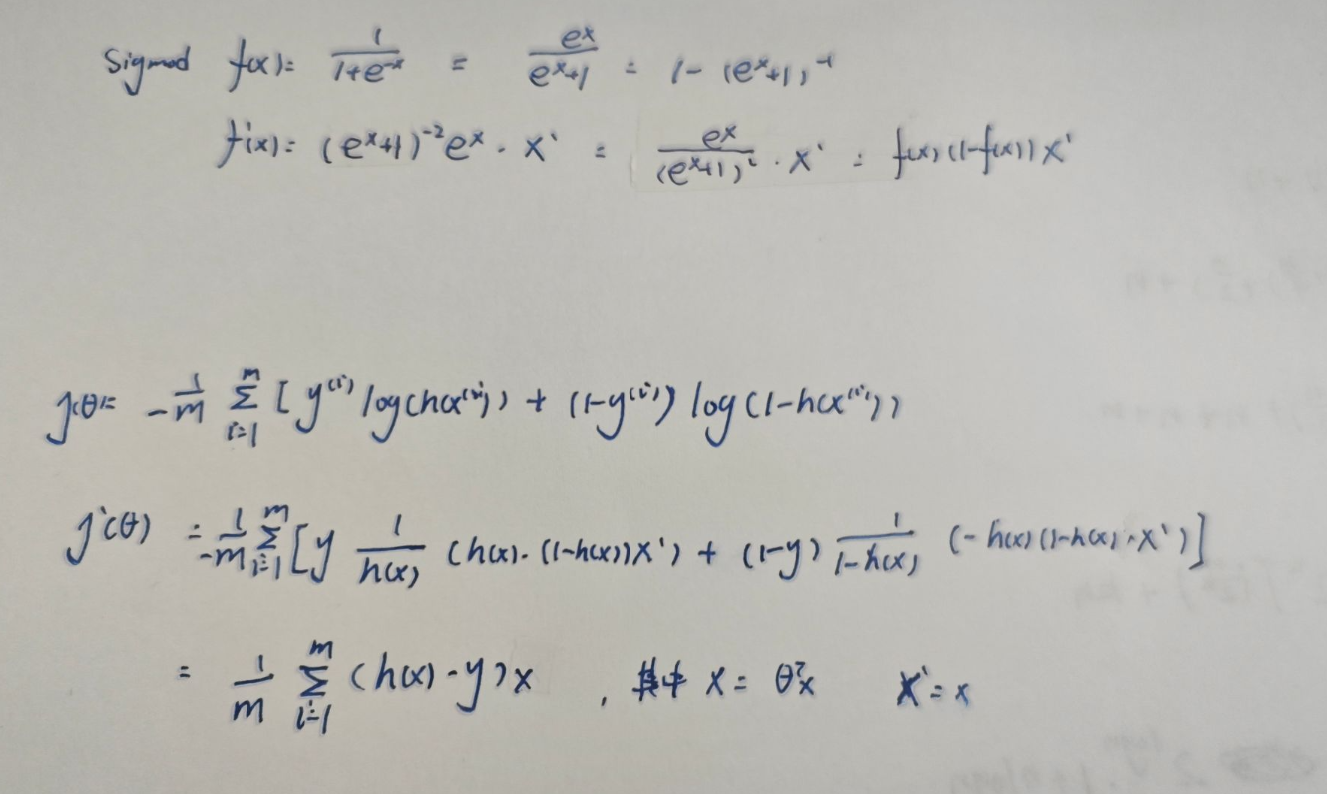 Sigmod f(x) = 1/(1+e^-x) = e^x/(e^x+1) = 1-(e^x+1)^-1
f'(x) = (e^x+1)^-2 e^x · x' = e^x/(e^x+1)^2 · x' = f(x)(1-f(x))x'
J(θ) = -1/m Σ_{i=1}^m [y^(i) log(h(x^(i))) + (1-y^(i)) log(1-h(x^(i)))
J'(θ) = -1/m Σ_{i=1}^m [y 1/h(x) (h(x)·(1-h(x))x') + (1-y) 1/(1-h(x)) (-h(x)(1-h(x)·x')]
= 1/m Σ_{i=1}^m (h(x)-y)x , 其中 x = θ^T x x' = x